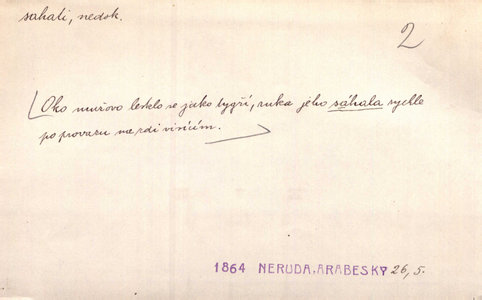 sahati, nedok.
2
Oko mužovo lesklo se jako tygří, ruka jeho sáhala rychle
po provazu na zdi visícím.
1864 NERUDA, ARABESKY 26, 5.